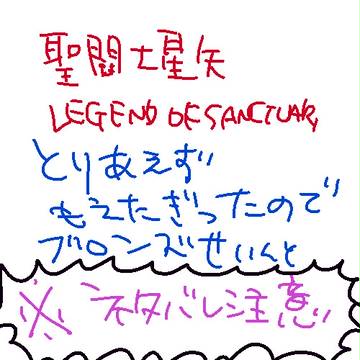 聖闘士星矢
LEGEND OF SANCTUARY
とりあえず
もえたぎったので
ブロンズせいんと
※ネタバレ注意